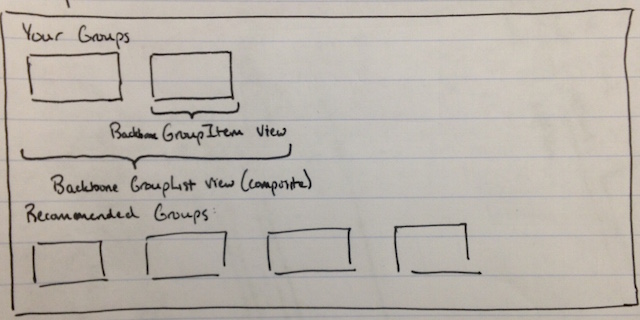 Your Groups
Backbone GroupItem View
Backbone GroupList View (composite)
Recommended Groups: